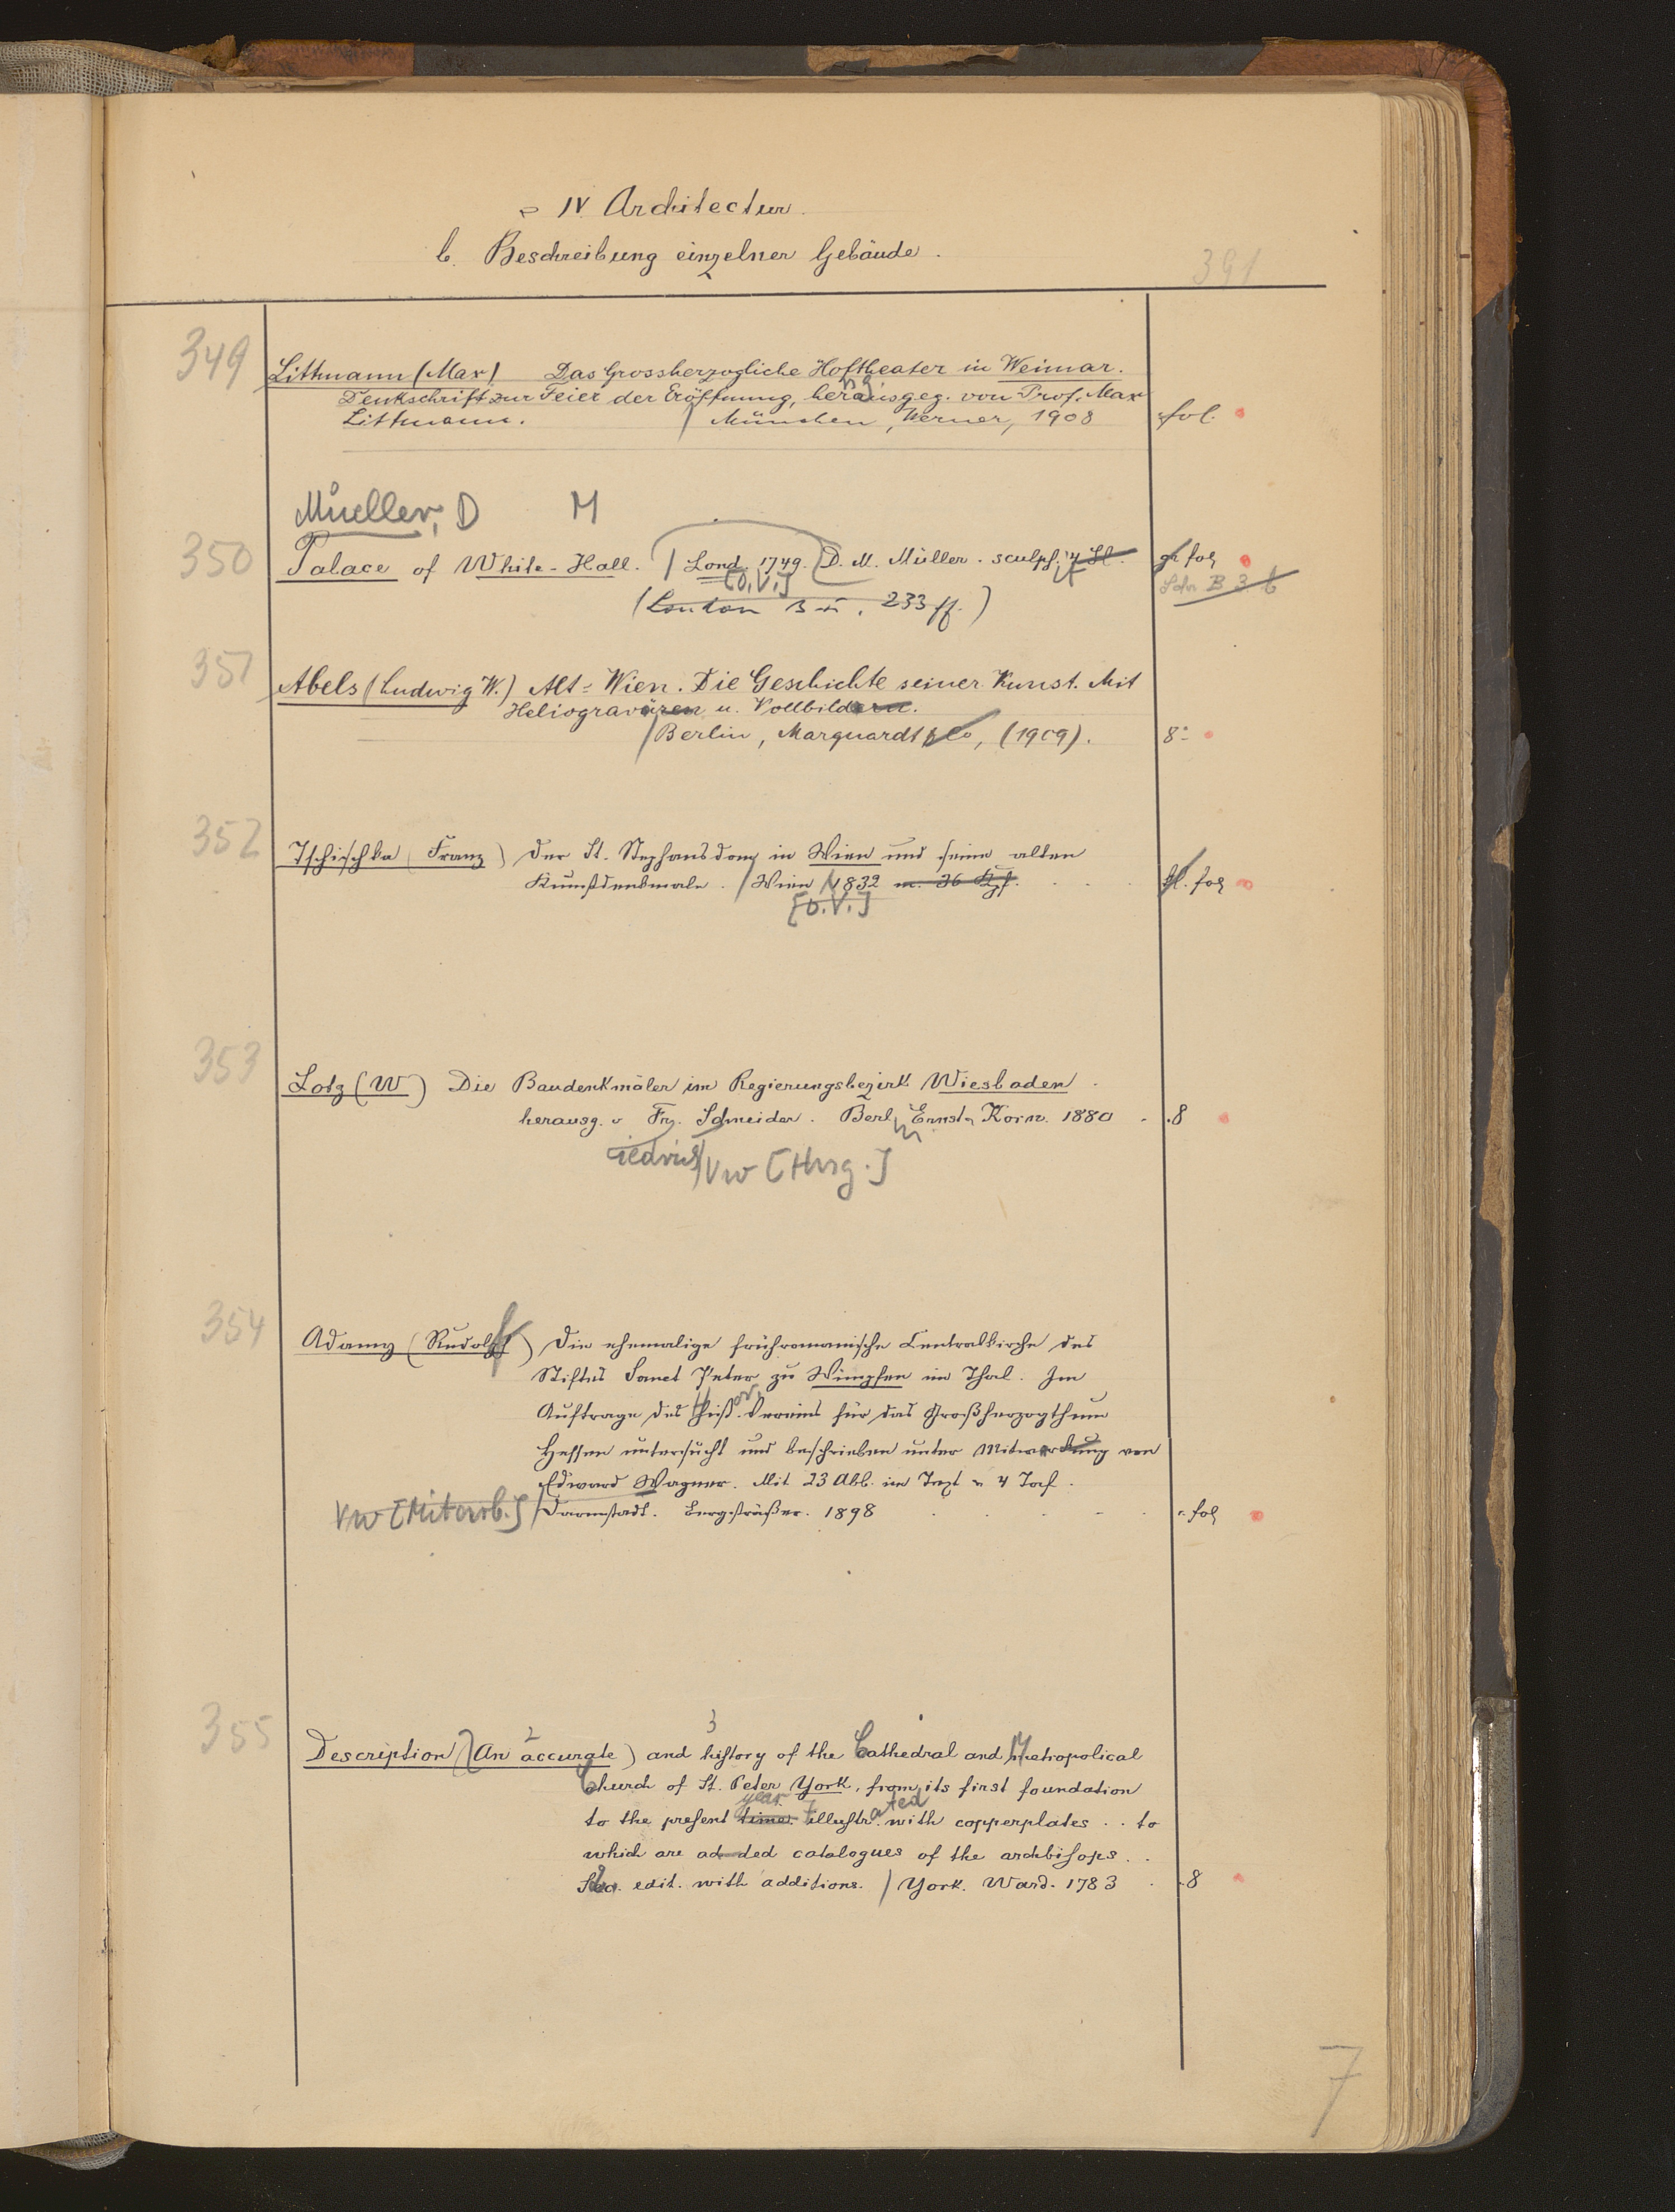 IV Architectur.
b. Beschreibung einzelner Gebäude.
391
349
Littmann (Max) Das Grossherzogliche Hoftheater in Weimar.
Denkschrift zur Feier der Eröffnung, herausgeg. von Prof. Max
Littmann. / München, Werner, 1908 fol.
Mueller, D M
350
Palace of White-Hall. / Lond. 1749. D. M. Müller. sculps. 4 Bl. gr. fol
[o.V.]
(London 233 ff.)
B 3 b
351
Abels (Ludwig W.) Alt=Wien. Die Geschichte seiner Kunst. Mit
Heliogravüren u. Vollbildern.
/ Berlin, Marquardt & Co, (1909). 8°
352
Tschischka (Franz) Der St. Stephansdom in Wien und seine alten
Kunstdenkmale. / Wien 1832 m. 36 Kpf. kl. fol
[o.V.]
353
Lotz (W) Die Baudenkmäler im Regierungsbezirk Wiesbaden
herausg. v Frz. Schneider. Berl Ernst u Korn. 1880 8
Vw [Hrsg.]
354
Adamy (Rudolph) Die ehemalige frühromanische Centralkirche des
Stiftes Sanct Peter zu Wimpfen im Thal. Im
Auftrage des Histor. Vereins für das Großherzogthum
Hessen untersucht und beschrieben unter Mitwirkung von
Edward Wagner. Mit 23 Abb. im Text u 4 Taf.
Vw [Mitarb.] / Darmstadt. Bergsträßer. 1898 fol
355
2 3
Description (An accurate) and history of the Cathedral and Metropolical
Church of St. Peter York, from its first foundation
year ated
to the present time. illustr. with copperplates . . to
which are ad-ded catalogues of the archbisops. .
2d. edit. with additions. / York. Ward. 1783 8
7